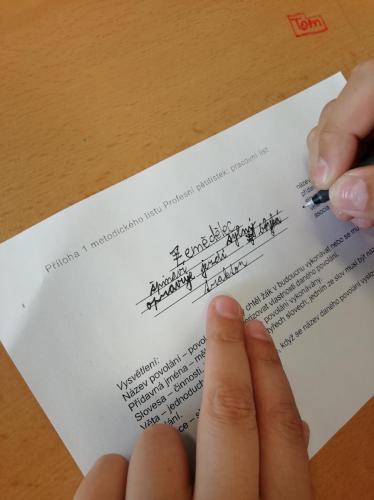 Tom
Příloha 1 metodického listu Profesní pětilístek: pracovní list
Zemědělec
špinavý silný
opravuje jezdí
traktor
název
přídav
asoci
Vysvětlení:
Název povolání – povol chtěl žák v budoucnu vykonávat nebo se mu
Přídavná jména – mě izovat vlastnosti daného povolání.
Slovesa – činnosti, povolání vykonávány.
Věta – jednoduch tyřech slovech, jedním ze slov musí být náz
lání.
ce – s když se název daného povolání vysl